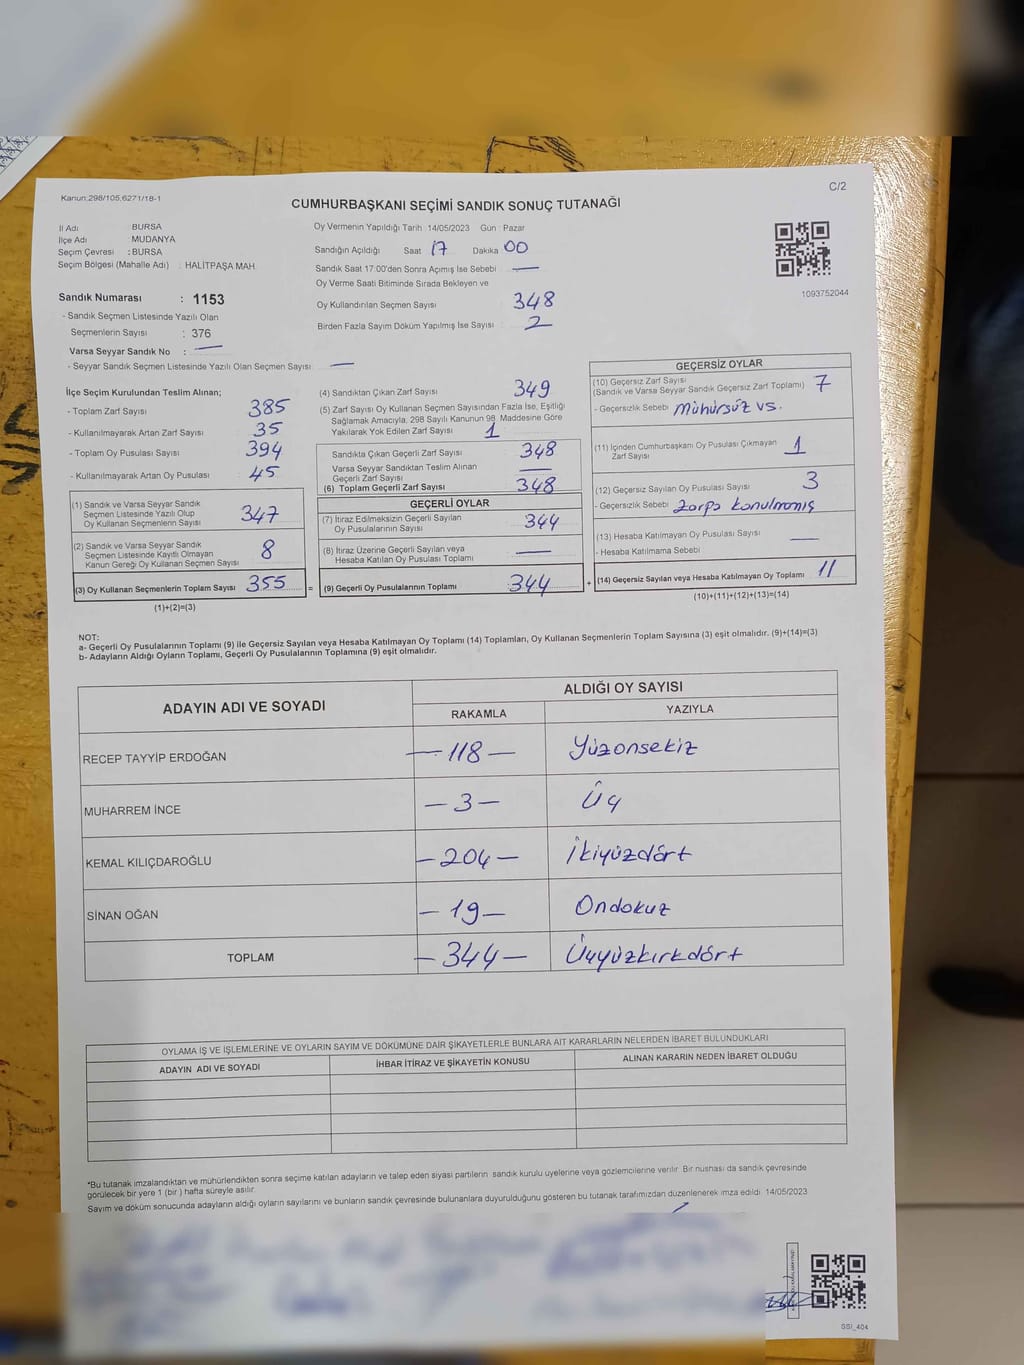 Kanun:298/105,6271/18-1
C/2
CUMHURBAŞKANI SEÇİMİ SANDIK SONUÇ TUTANAĞI
İl Adı BURSA
İlçe Adı MUDANYA
Seçim Çevresi : BURSA
Seçim Bölgesi (Mahalle Adı) : HALİTPAŞA MAH.
Sandık Numarası : 1153
- Sandık Seçmen Listesinde Yazılı Olan
Seçmenlerin Sayısı : 376
Varsa Seyyar Sandık No : —
- Seyyar Sandık Seçmen Listesinde Yazılı Olan Seçmen Sayısı —
Oy Vermenin Yapıldığı Tarih 14/05/2023 Gün : Pazar
Sandığın Açıldığı Saat 17 Dakika 00
Sandık Saat 17:00'den Sonra Açımış İse Sebebi —
Oy Verme Saati Bitiminde Sırada Bekleyen ve
Oy Kullandırılan Seçmen Sayısı 348
Birden Fazla Sayım Döküm Yapılmış İse Sayısı 2
1093752044
İlçe Seçim Kurulundan Teslim Alınan;
- Toplam Zarf Sayısı 385
- Kullanılmayarak Artan Zarf Sayısı 35
- Toplam Oy Pusulası Sayısı 394
- Kullanılmayarak Artan Oy Pusulası 45
(1) Sandık ve Varsa Seyyar Sandık
Seçmen Listesinde Yazılı Olup
Oy Kullanan Seçmenlerin Sayısı 347
(2) Sandık ve Varsa Seyyar Sandık
Seçmen Listesinde Kayıtlı Olmayan
Kanun Gereği Oy Kullanan Seçmen Sayısı 8
(3) Oy Kullanan Seçmenlerin Toplam Sayısı 355 =
(1)+(2)=(3)
(4) Sandıktan Çıkan Zarf Sayısı 349
(5) Zarf Sayısı Oy Kullanan Seçmen Sayısından Fazla İse, Eşitliği
Sağlamak Amacıyla, 298 Sayılı Kanunun 98. Maddesine Göre
Yakılarak Yok Edilen Zarf Sayısı 1
Sandıkta Çıkan Geçerli Zarf Sayısı 348
Varsa Seyyar Sandıktan Teslim Alınan
Geçerli Zarf Sayısı —
(6) Toplam Geçerli Zarf Sayısı 348
GEÇERLİ OYLAR
(7) İtiraz Edilmeksizin Geçerli Sayılan
Oy Pusulalarının Sayısı 344
(8) İtiraz Üzerine Geçerli Sayılan veya
Hesaba Katılan Oy Pusulası Toplamı —
(9) Geçerli Oy Pusulalarının Toplamı 344 +
GEÇERSİZ OYLAR
(10) Geçersiz Zarf Sayısı
(Sandık ve Varsa Seyyar Sandık Geçersiz Zarf Toplamı) 7
- Geçersizlik Sebebi Mühürsüz vs.
(11) İçinden Cumhurbaşkanı Oy Pusulası Çıkmayan
Zarf Sayısı 1
(12) Geçersiz Sayılan Oy Pusulası Sayısı 3
- Geçersizlik Sebebi Zarfa konulmamış
(13) Hesaba Katılmayan Oy Pusulası Sayısı —
- Hesaba Katılmama Sebebi
(14) Geçersiz Sayılan veya Hesaba Katılmayan Oy Toplamı 11
(10)+(11)+(12)+(13)=(14)
NOT:
a- Geçerli Oy Pusulalarının Toplamı (9) ile Geçersiz Sayılan veya Hesaba Katılmayan Oy Toplamı (14) Toplamları, Oy Kullanan Seçmenlerin Toplam Sayısına (3) eşit olmalıdır. (9)+(14)=(3)
b- Adayların Aldığı Oyların Toplamı, Geçerli Oy Pusulalarının Toplamına (9) eşit olmalıdır.
ADAYIN ADI VE SOYADI
ALDIĞI OY SAYISI
RAKAMLA YAZIYLA
RECEP TAYYİP ERDOĞAN —118— Yüzonsekiz
MUHARREM İNCE —3— Üç
KEMAL KILIÇDAROĞLU —204— İkiyüzdört
SİNAN OĞAN —19— Ondokuz
TOPLAM —344— Üçyüzkırkdört
OYLAMA İŞ VE İŞLEMLERİNE VE OYLARIN SAYIM VE DÖKÜMÜNE DAİR ŞİKAYETLERLE BUNLARA AİT KARARLARIN NELERDEN İBARET BULUNDUKLARI
ADAYIN ADI VE SOYADI İHBAR İTİRAZ VE ŞİKAYETİN KONUSU ALINAN KARARIN NEDEN İBARET OLDUĞU
*Bu tutanak imzalandıktan ve mühürlendikten sonra seçime katılan adayların ve talep eden siyasi partilerin sandık kurulu üyelerine veya gözlemcilerine verilir. Bir nushası da sandık çevresinde
görülecek bir yere 1 (bir ) hafta süreyle asılır.
Sayım ve döküm sonucunda adayların aldığı oyların sayılarını ve bunların sandık çevresinde bulunanlara duyurulduğunu gösteren bu tutanak tarafımızdan düzenlenerek imza edildi. 14/05/2023
SSİ_404